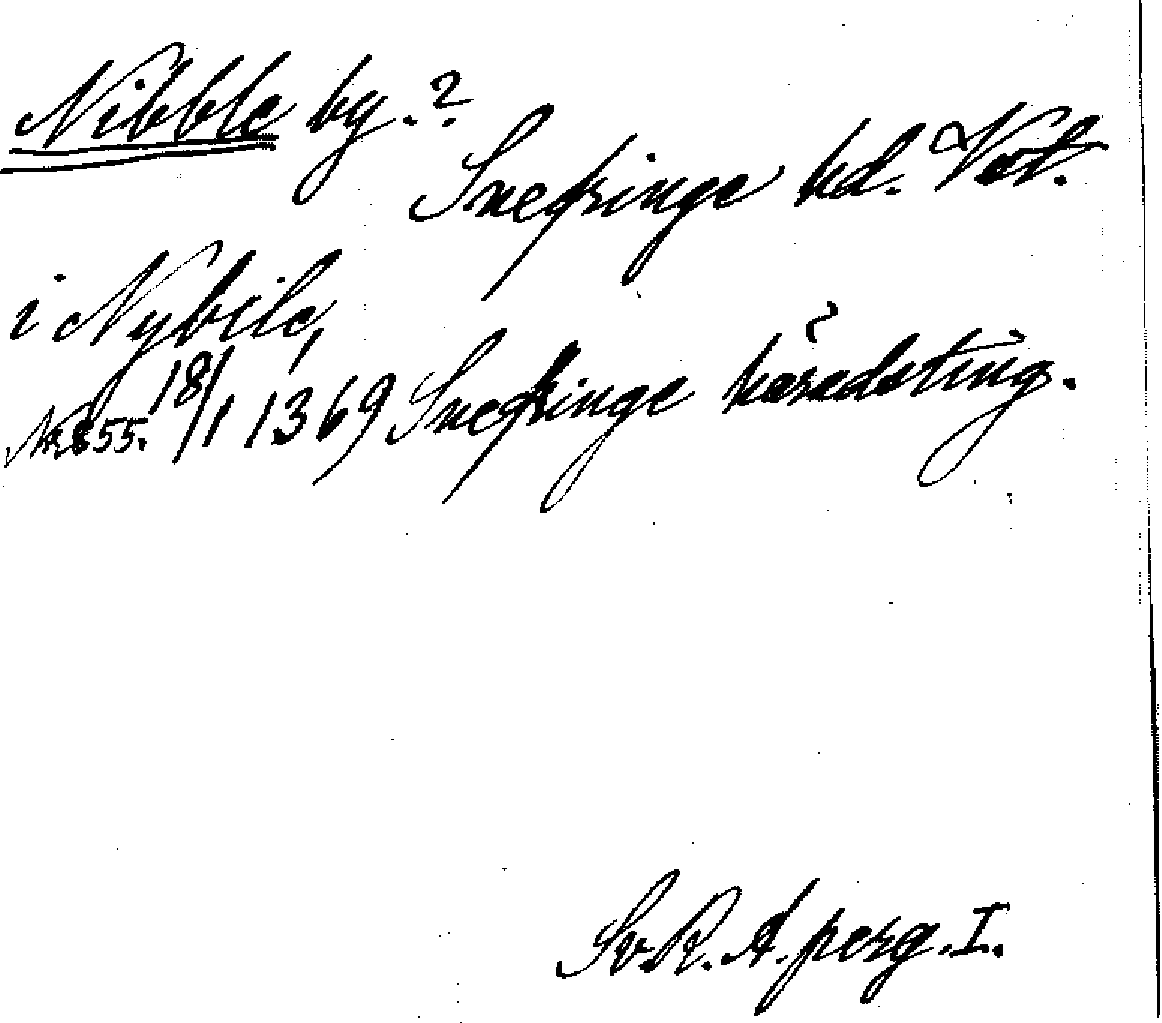 Nibble by.?
Snefringe hd. Vstl.
i Nybile,
Nr 855. 18/1 1369 Snefringe häradsting.
Sv. R. A. perg. I.